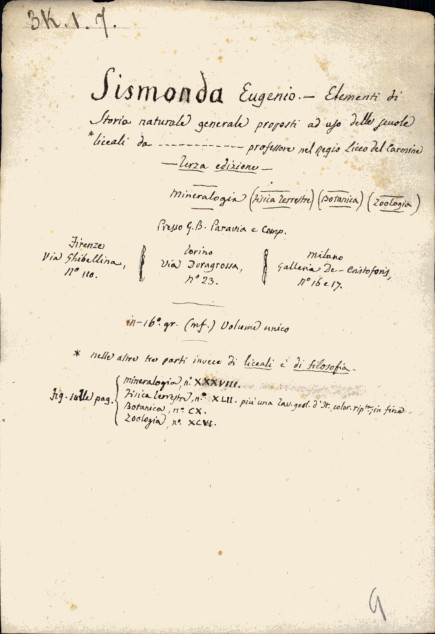 3K.1.7.
Sismonda Eugenio. — Elementi di
Storia naturale generale proposti ad uso delle scuole
*liceali da ------------ professore nel Regio Liceo del Carmine
— terza edizione —
Mineralogia (Fisica terrestre) (Botanica) (Zoologia)
Presso G.B. Paravia e Comp.
Firenze
Via Ghibellina,
nº 110.
Torino
Via Doragrossa,
nº 23.
Milano
Galleria De-Cristoforis,
nº 16 e 17.
in-16º. gr. (mf.) Volume unico
* nelle altre tre parti invece di liceali è di filosofia.
fig. sulle pag.
Mineralogia, nº. XXXVIII.
Fisica terrestre, nº. XLII. più una tav. geol. d'It. color. rip.ta in fine.
Botanica, nº. CX.
Zoologia, nº. XCVI.